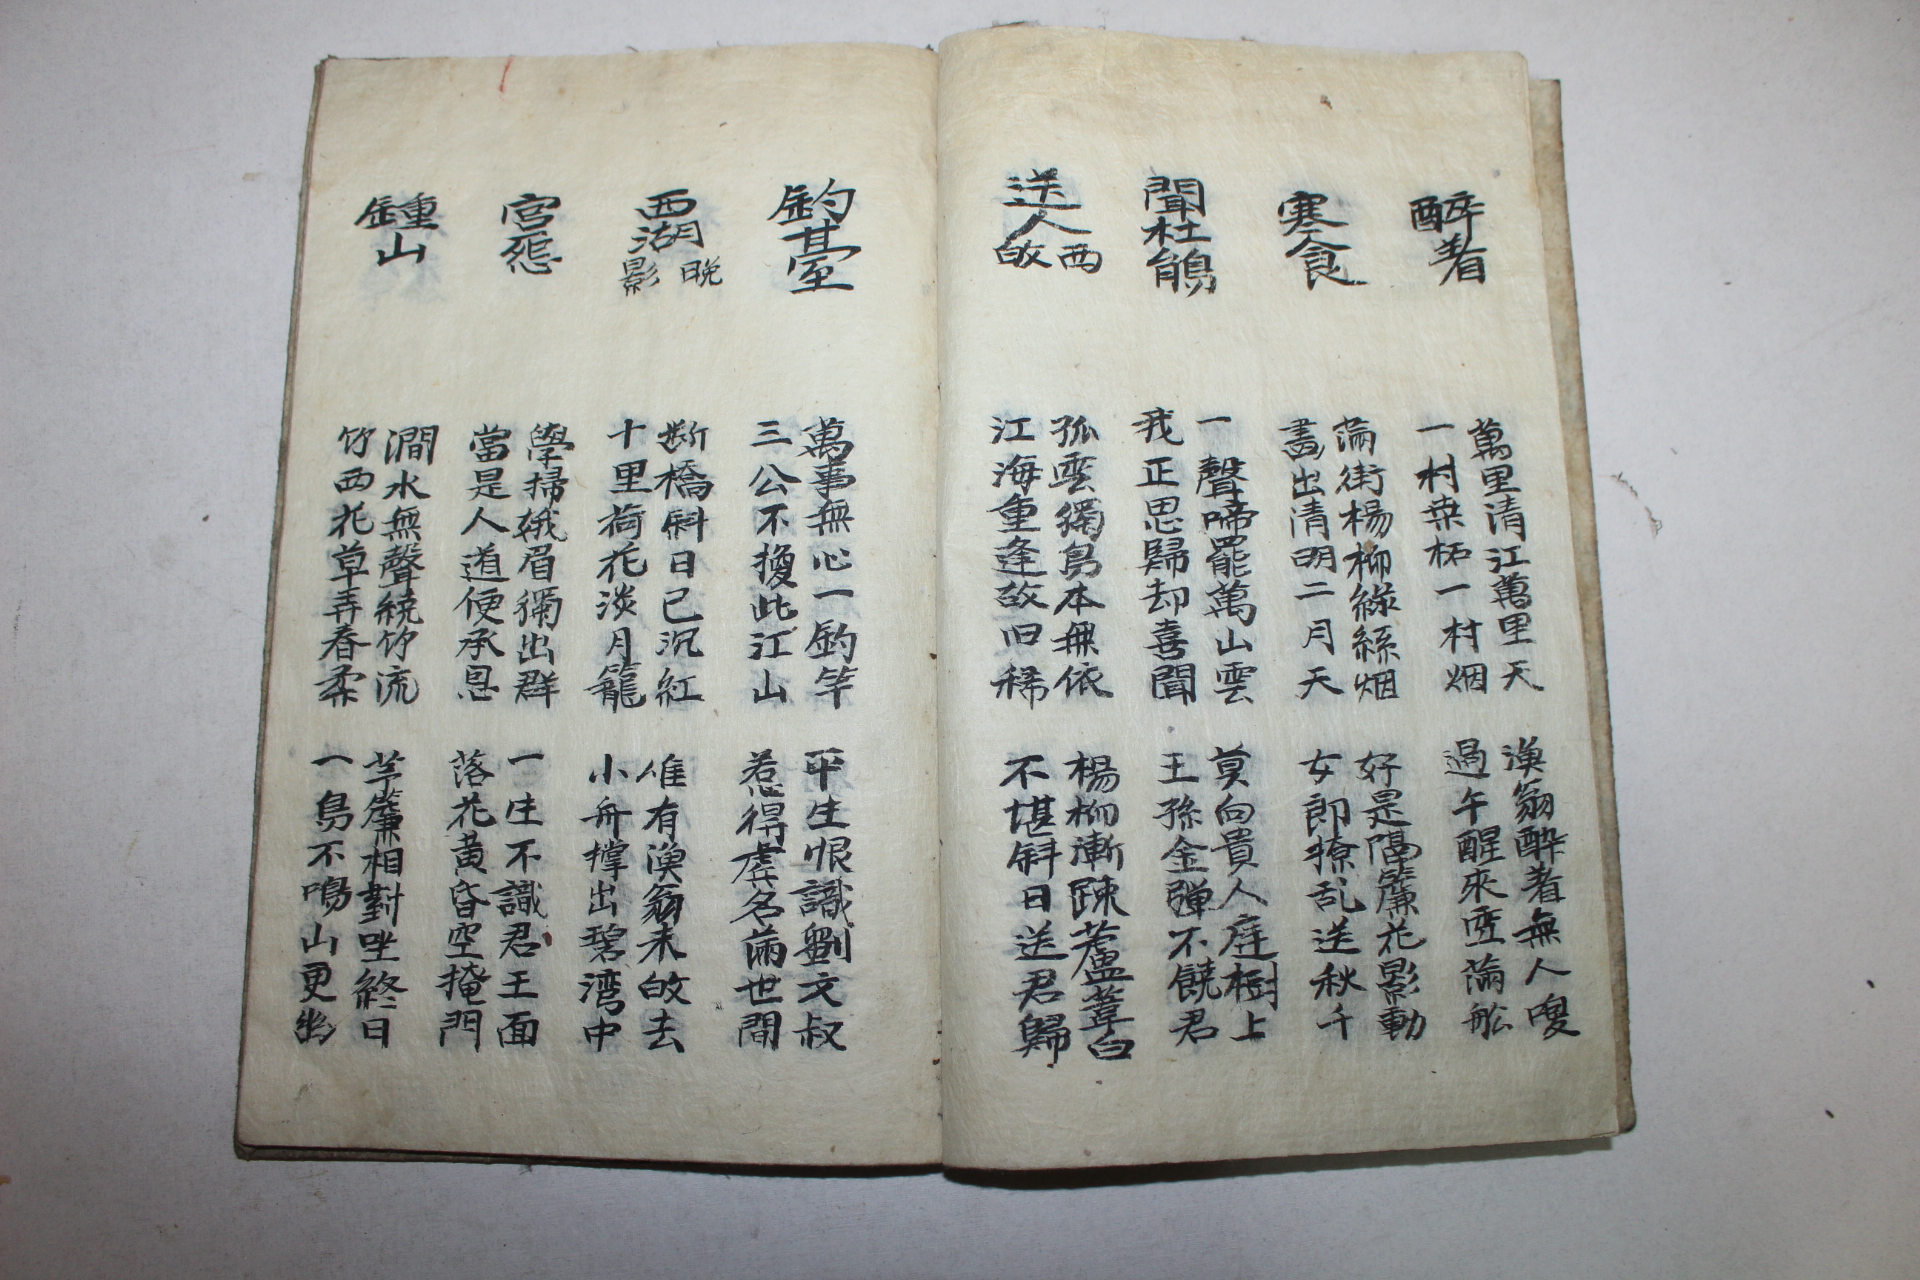 醉着
萬里清江萬里天
一村桑柘一村烟
漁翁醉着無人喚
過午醒來雪滿舩
寒食
滿街楊柳綠絲烟
畵出清明二月天
好是隔簾花影動
女郎撩乱送秋千
聞杜鵑
一聲啼罷萬山雲
我正思歸却喜聞
莫向貴人庭樹上
王孫金彈不饒君
送人西皈
孤雲獨鳥本無依
江海重逢故旧稀
楊柳漸踈蘆葦白
不堪斜日送君歸
釣臺
萬事無心一釣竿
三公不換此江山
平生恨識劉文叔
惹得虛名滿世間
西湖晚影
断橋斜日已沉紅
十里荷花淡月籠
唯有漁翁未皈去
小舟撑出碧湾中
宮怨
學掃蛾眉獨出群
當是人道便承恩
一生不識君王面
落花黃昏空掩門
鍾山
澗水無聲繞竹流
竹西花草弄春柔
茅簷相對坐終日
一鳥不鳴山更幽